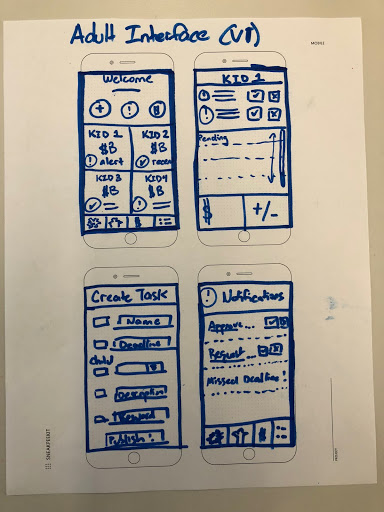 Adult Interface (V1)
MOBILE
Welcome
KID 1
KID 2
$B
$B
! alert
KID 3
KID 4
$B
$B
!
KID 1
!
!
Pending
$
+/-
Create Task
Name
Deadline
Child
Description
Reward
Publish!
! Notifications
Approve...
Request...
Missed Deadline!
SNEAKPEEKIT